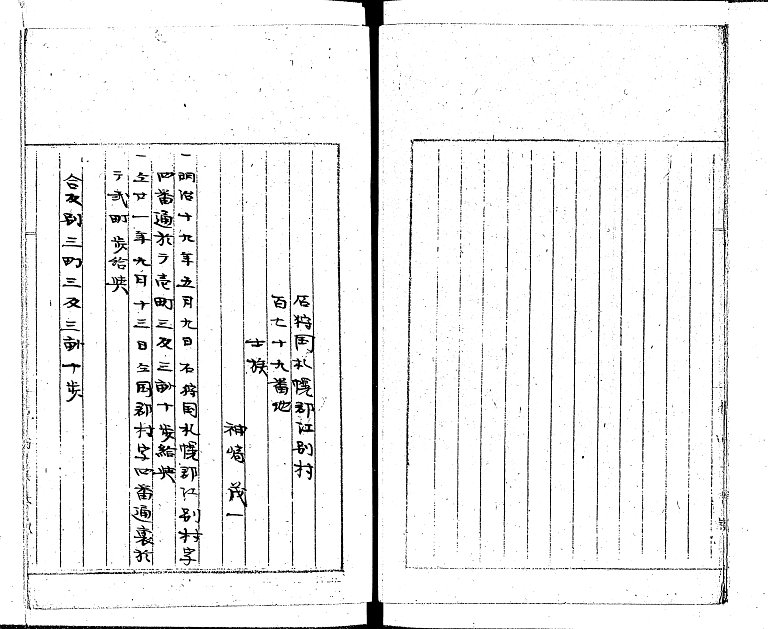 石狩国札幌郡江別村
百七十九番地
士族
神崎茂一
一明治十九年五月九日石狩国札幌郡江別村字
四番通於テ壱町三反三畝十歩給与
一仝廿一年九月十三日仝国郡村字四番通裏於
テ弐町歩給与
合反別三町三反三畝十歩